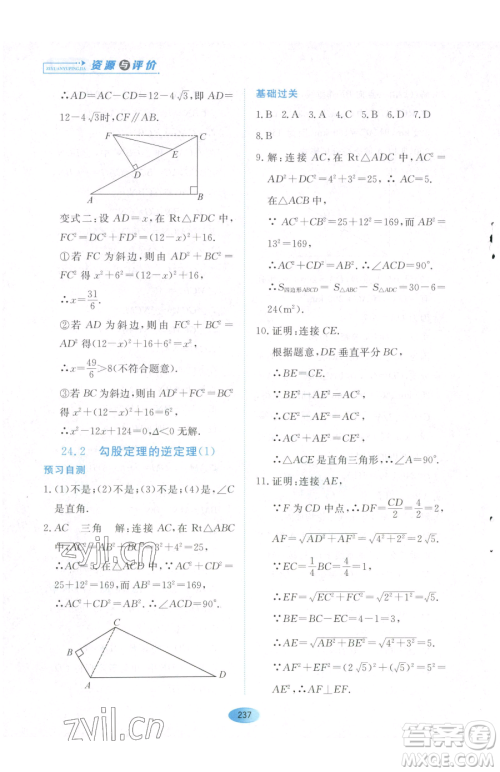 资源与评价
∴AD=AC-CD=12-4√3,即AD=
12-4√3时,CF∥AB.
F
C
E
D
A
B
变式二:设 AD=x,在 Rt△FDC 中,
FC²=DC²+FD²=(12-x)²+16.
①若 FC 为斜边,则 FD²+AB²=FC².
∴x=31/6.
②若 AB 为斜边,则 FD²+FC²=AB².
∴x=49/6>8(不符合题意).
③若 BC 为斜边,则
12-x)²+16=0,Δ<0 无解.
24.2 勾股定理的逆定理(1)
预习自测
1.(1)不是;(2)不是;(3)不是;(4)是,∠C
是直角.
2.AC 三角 解:连接AC,在Rt△ABC
中,AC²=AB²+BC²=3²+4²=25.
∴AC=5.在△ACD中,∵AC²+CD²=
25+12²=169,AD²=13²=169,
∴AC²+CD²=AD².∴∠ACD=90°.
C
B
A
D
zyjl.cn
基础过关
1.B 2.A 3.C 4.C 5.B 6.D 7.D
8.B
9.解:连接 AC,在 Rt△ADC 中,AC²=
AD²+CD²=4²+3²=25.∴AC=5.
在△ACB 中,
∵AC²+BC²=25+12²=169,AB²=
13²=169,
∴AC²+CB²=AB².∴∠ACB=90°.
∴S四边形ABCD=S△ABC-S△ADC=30-6=
24(m²).
10.证明:连接 CE.
根据题意,DE 垂直平分 BC.
∴BE=CE.
∵BE²-AE²=AC²,
∴CE²-AE²=AC².
∴CE²=AE²+AC².
∴△ACE 是直角三角形.
∴∠A=90°.
11.证明:连接 AE.
∵F 为 CD 中点,∴DF=CD/2=4/2=2,
AF=√(AD²+AF²)=√(4²+2²)=2√5.
∵EC=1/4BC=1/4×4=1,
∴EF=√(EC²+FC²)=√(2²+1²)=√5.
∵BE=BC-EC=4-1=3,
∴AE=√(AB²+BE²)=√(4²+3²)=5.
∵AF²+EF²=(2√5)²+(√5)²=25,
237
答案圈
MXQE.COM